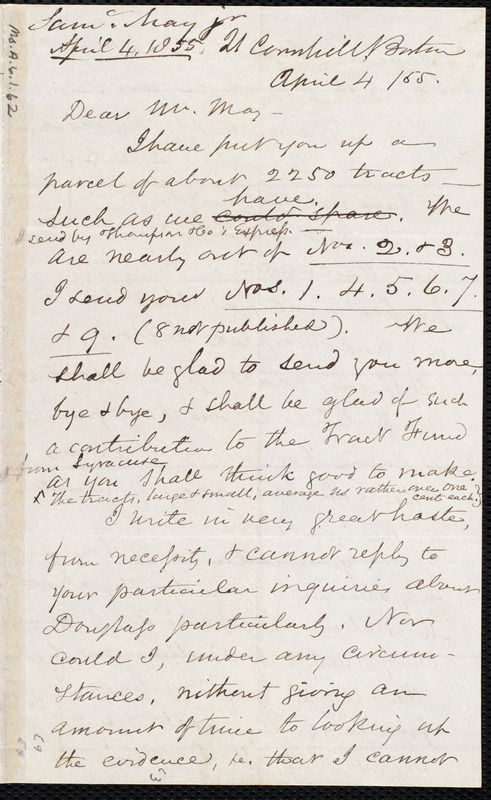 Ms.A.6.1.62
Saml. May Jr
April 4. 1855. 21 Cornhill, Boston
April 4 /55.
Dear Mr. May -
I have put you up a
parcel of about 2250 tracts -
have.
such as we could spare. We
I send by Thompson & Co's Express.
are nearly out of Nos. 2. & 3.
I send your Nos. 1. 4. 5. 6. 7.
& 9. (8 not published). We
shall be glad to send you more,
bye & bye, & shall be glad of such
a contribution to the Tract Fund
from Syracuse
as you shall think good to make.
x The tracts, large & small, average us rather over one
cent each.
I write in very great haste,
from necessity, & cannot reply to
your particular inquiries about
Douglass particularly. Nor
could I, under any circum-
stances, without giving an
amount of time to looking up
the evidence, &c. that I cannot